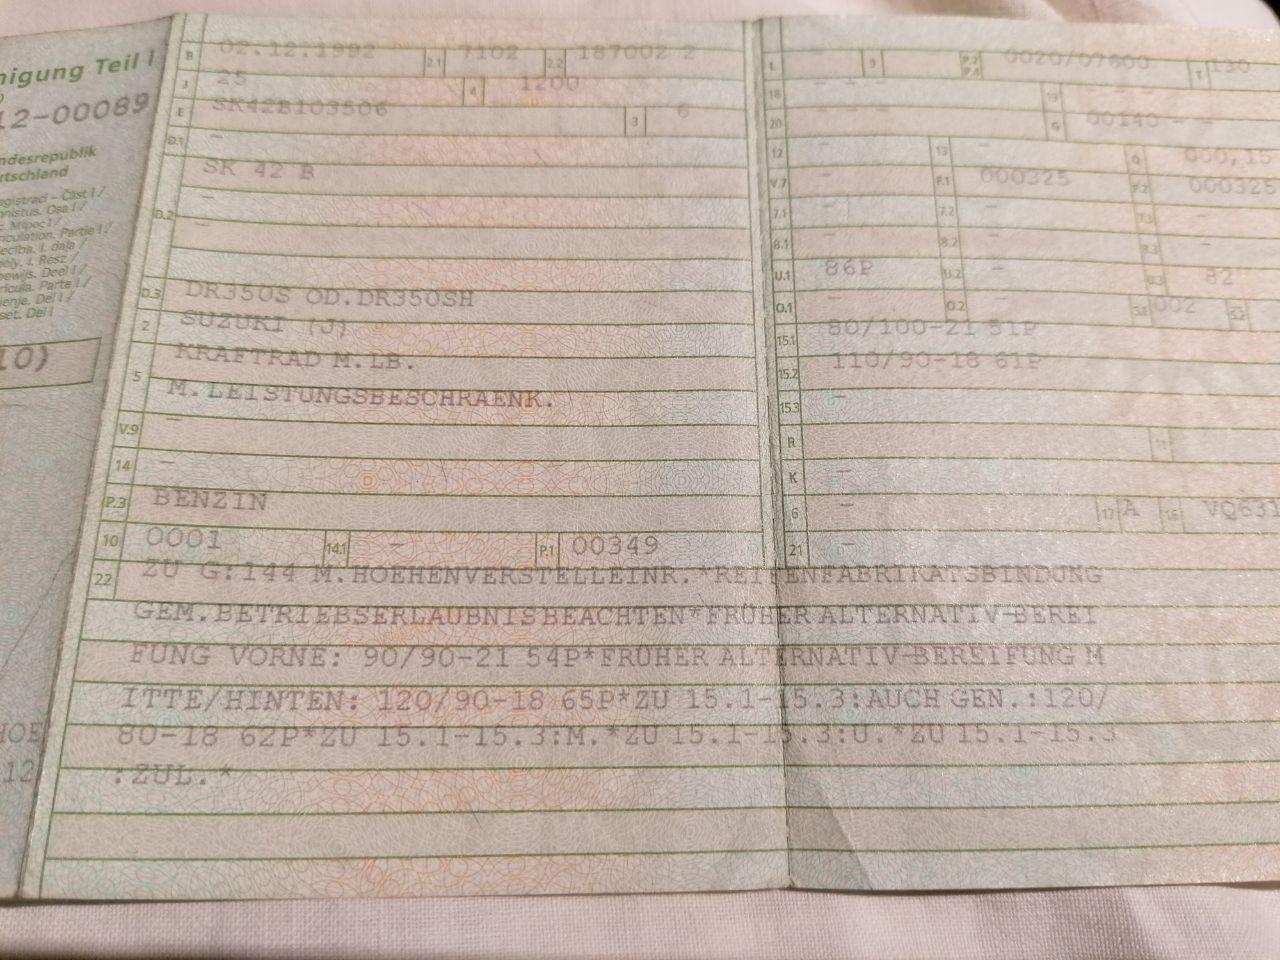 nigung Teil I
12-00089
ndesrepublik
rtschland
10)
HOE
12
B 02.12.1992 2.1 7102 2.2 187002 2
J 25 4 1200
E SK42B103506 3 6
D.1 -
SK 42 B
D.2 -
-
D.3 DR350S OD.DR350SH
2 SUZUKI (J)
5 KRAFTRAD M.LB.
M.LEISTUNGSBESCHRAENK.
V.9 -
14 -
P.3 BENZIN
10 0001 14.1 - P.1 00349
L - 9 - P.2 P.4 0020/07600 T 130
18 - - - 19 - - -
20 - - - G 00140 - -
12 - 13 - Q 000,15
V.7 - F.1 000325 F.2 000325
7.1 - 7.2 - 7.3 -
8.1 - 8.2 - 8.3 -
U.1 86P U.2 - U.3 82
O.1 - O.2 - S.1 002 S.2
15.1 80/100-21 51P
15.2 110/90-18 61P
15.3 -
R 11
K -
6 - 17 A 16 VQ631
21 -
22 ZU G:144 M.HOEHENVERSTELLEINR.*REIFENFABRIKATSBINDUNG
GEM.BETRIEBSERLAUBNIS BEACHTEN*FRÜHER ALTERNATIV-BEREI
FUNG VORNE: 90/90-21 54P*FRÜHER ALTERNATIV-BEREIFUNG M
ITTE/HINTEN: 120/90-18 65P*ZU 15.1-15.3:AUCH GEN.:120/
80-18 62P*ZU 15.1-15.3:M.*ZU 15.1-15.3:U.*ZU 15.1-15.3
:ZUL.*